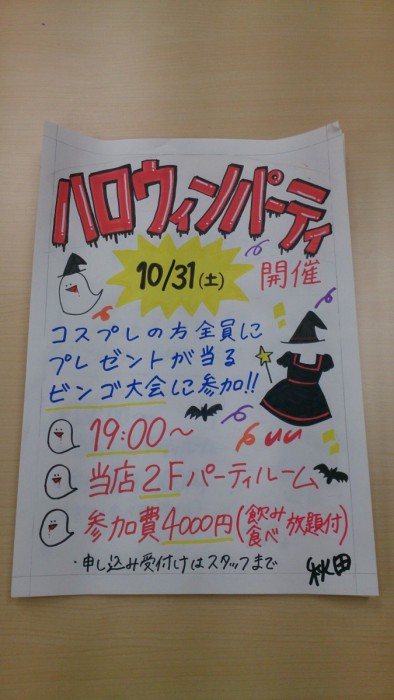 ハロウィンパーティ
10/31(土) 開催
コスプレの方全員に
プレゼントが当る
ビンゴ大会に参加!!
19:00〜
当店2Fパーティルーム
参加費4000円(飲み食べ放題付)
・申し込み受付けはスタッフまで
秋田